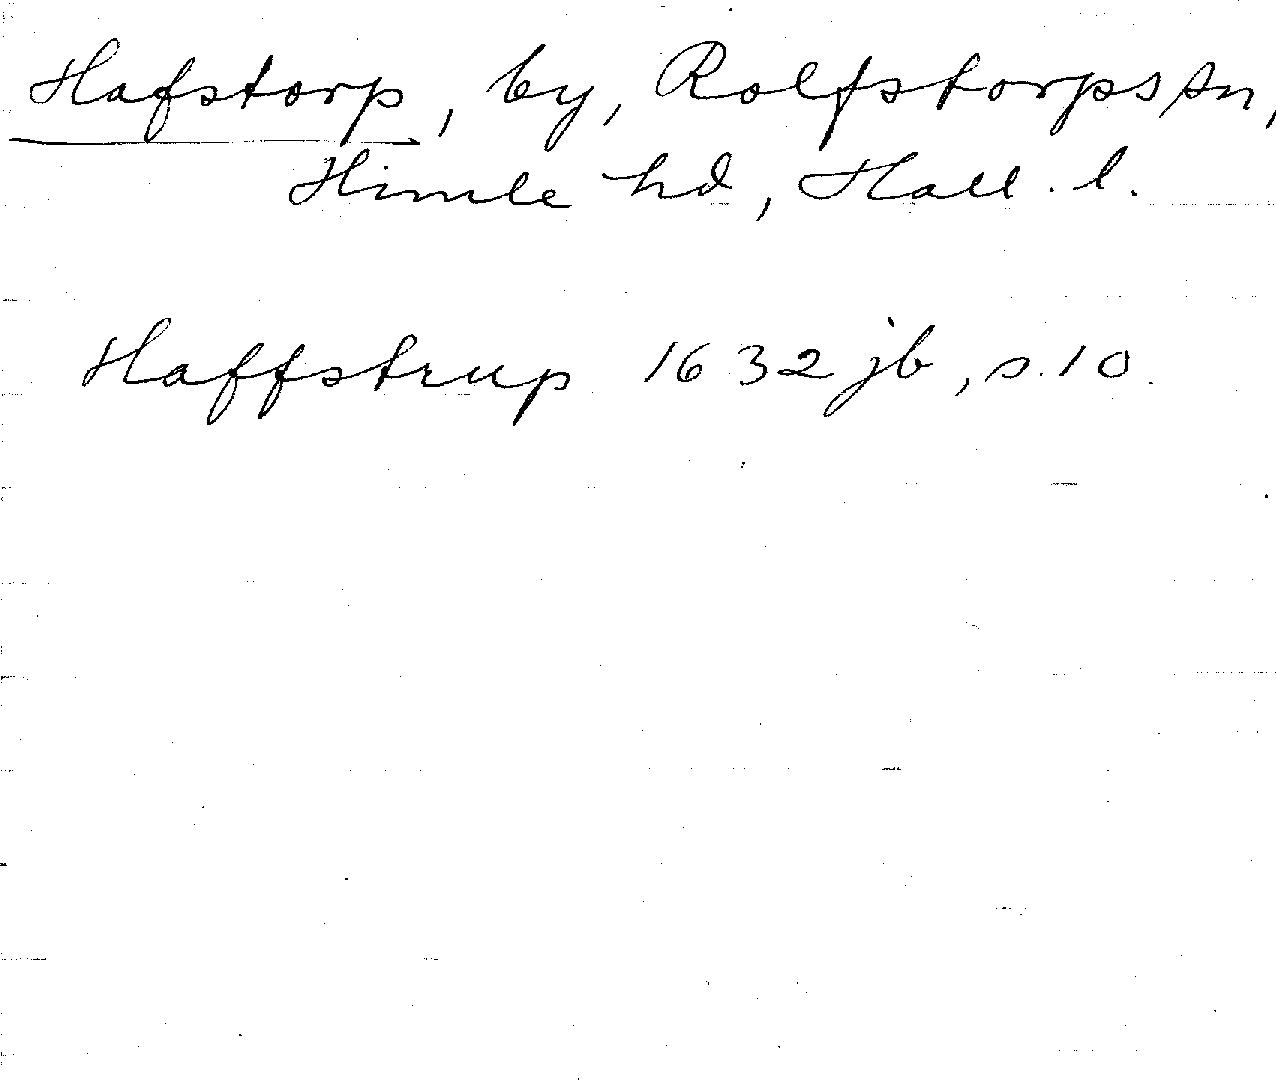 Hafstorp, by, Rolfstorps sn,
Himle hd, Hall. l.
Haffstrup 1632 jb, s. 10.